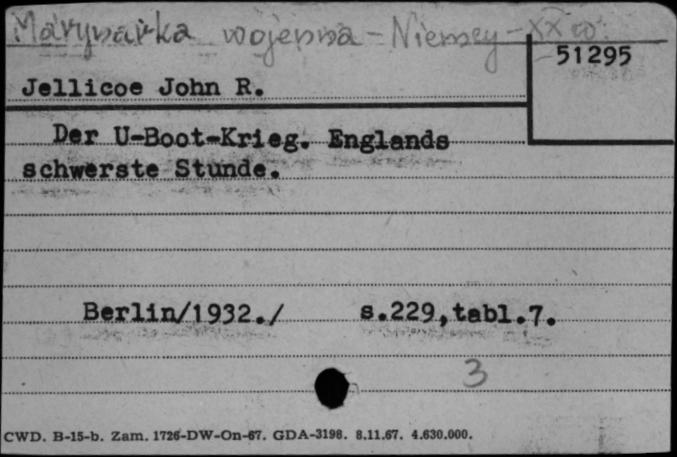 Marynarka wojenna - Niemcy - XX w.
51295
Jellicoe John R.
Der U-Boot-Krieg. Englands
schwerste Stunde.
Berlin/1932./ s.229,tabl.7.
3
CWD. B-15-b. Zam. 1726-DW-On-67. GDA-3198. 8.11.67. 4.630.000.